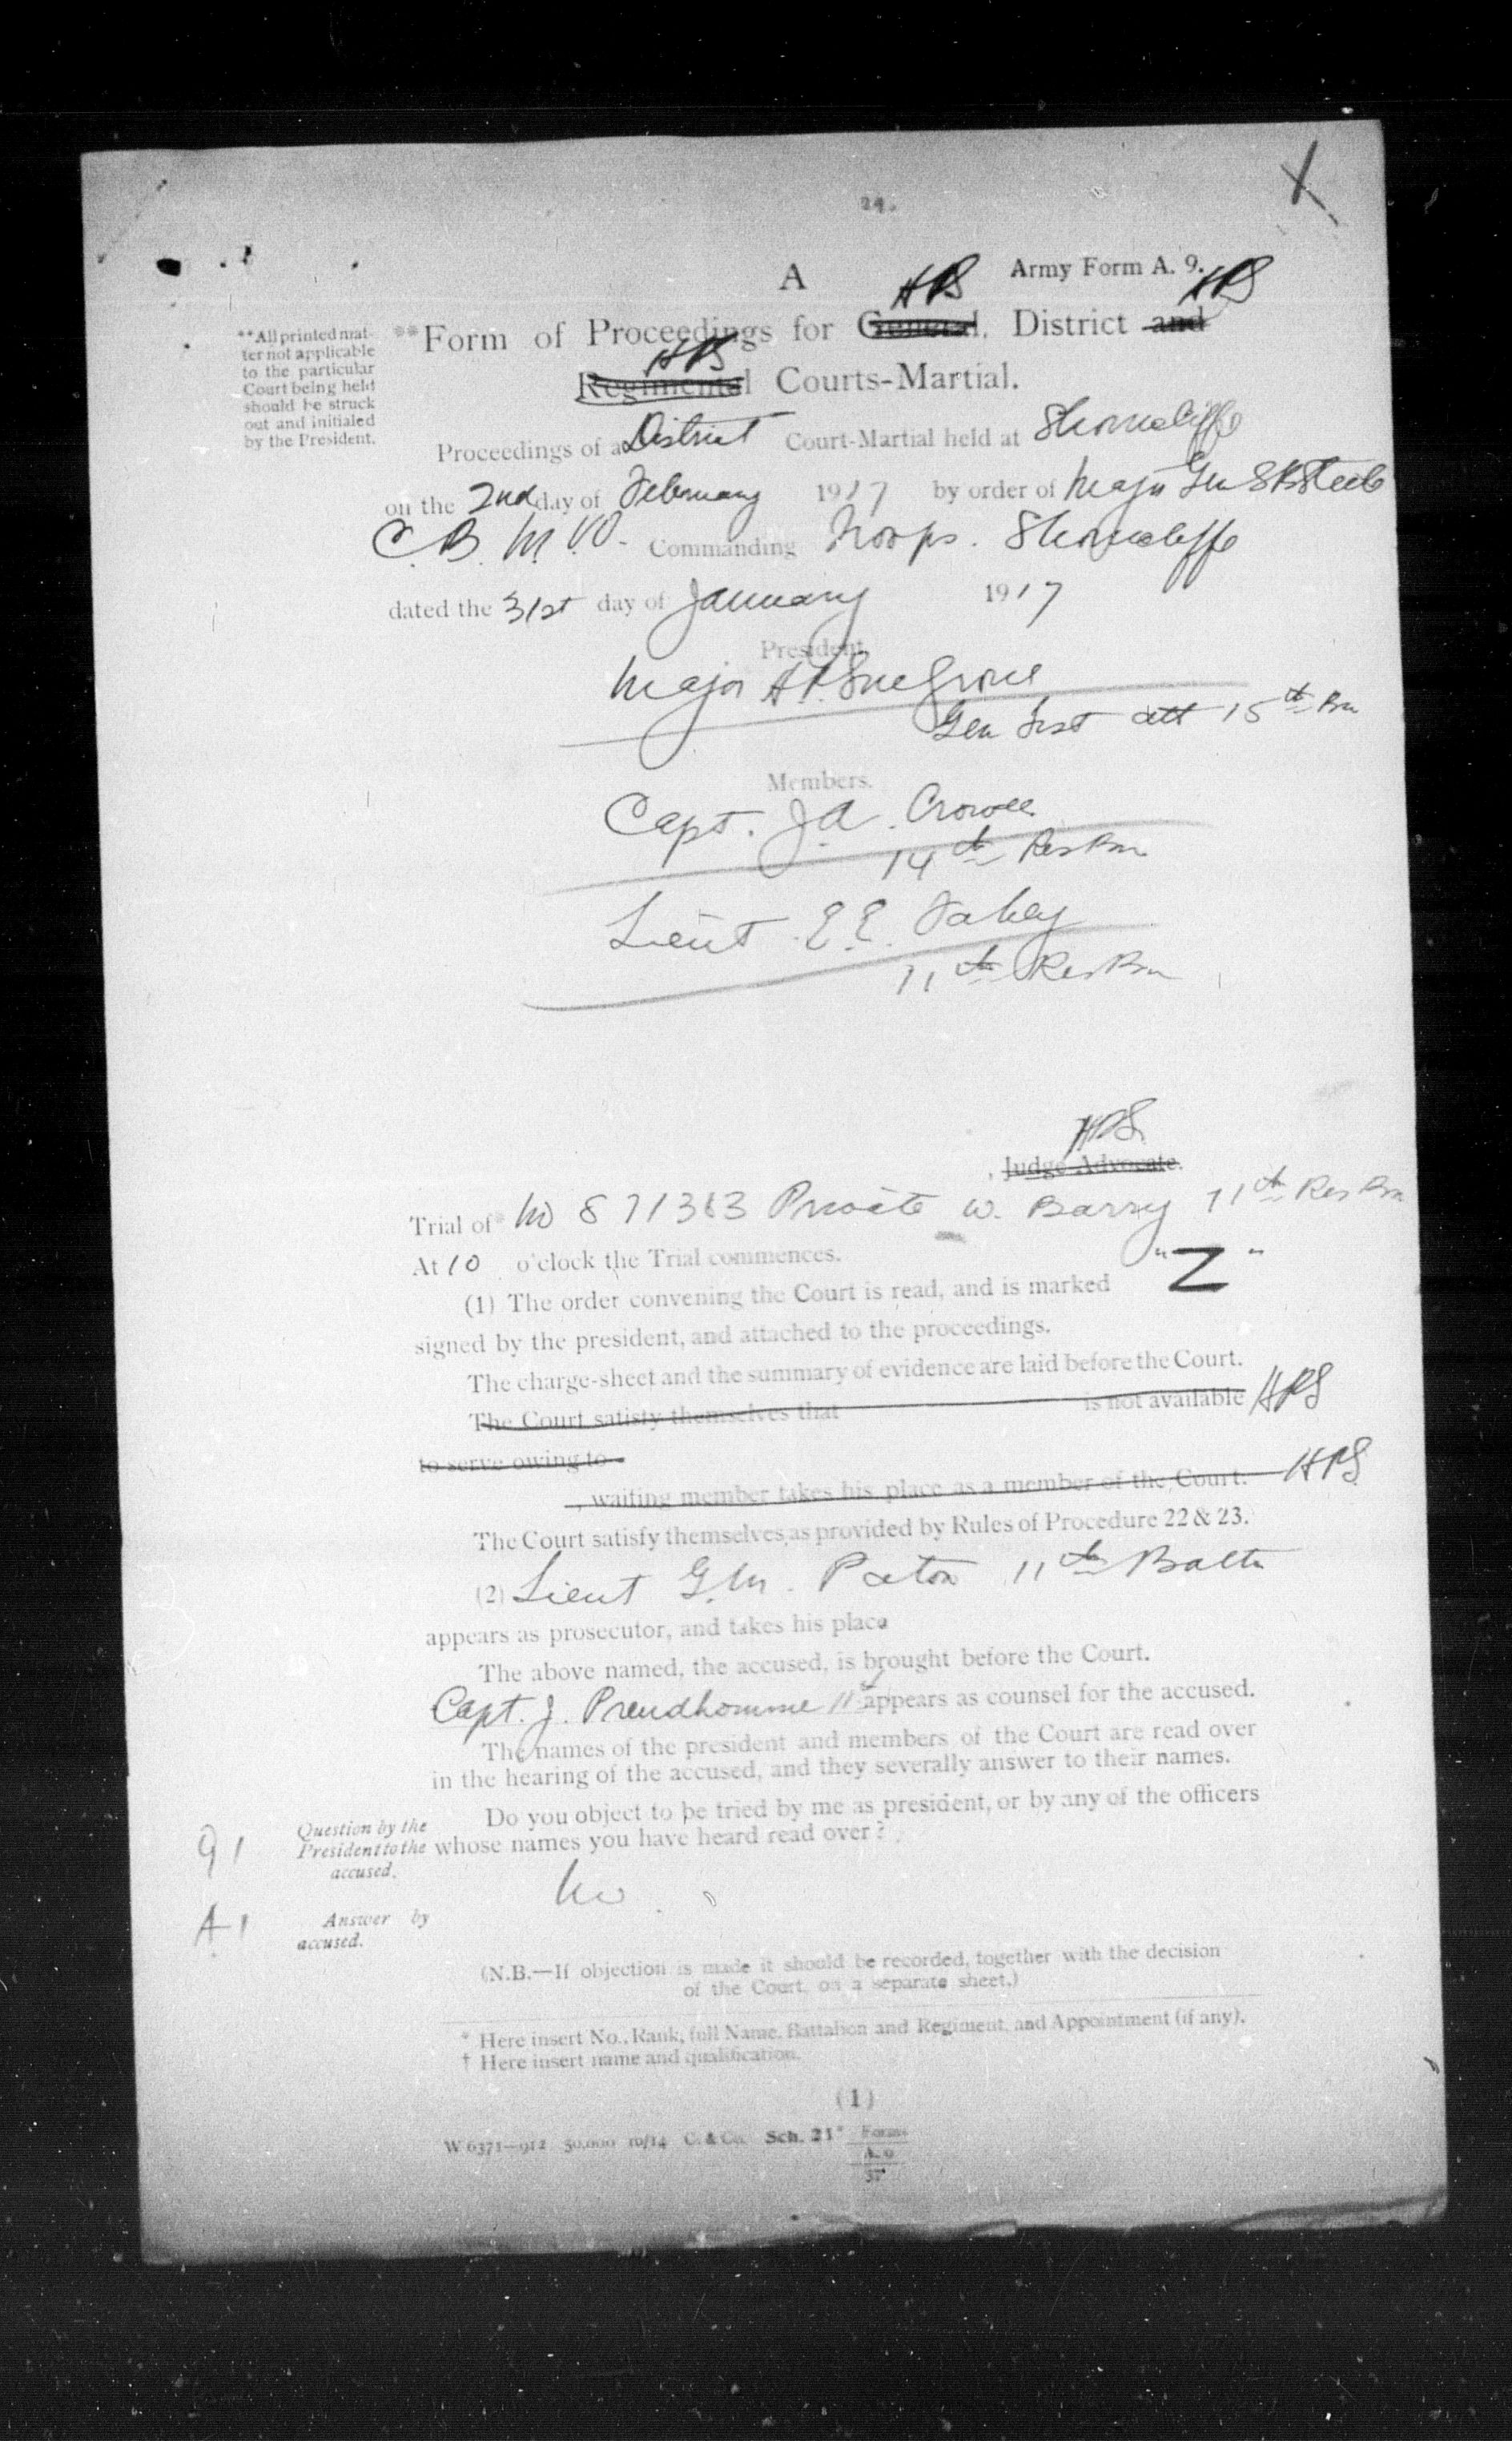 24.
X
A
Army Form A. 9.
HPS HPS
**All printed mat-
ter not applicable
to the particular
Court being held
should be struck
out and initialed
by the President.
**Form of Proceedings for General, District and
HPS
Regimental Courts-Martial.
Proceedings of a District Court-Martial held at Shorncliffe
on the 2nd day of February 1917 by order of Major Gen S B Steele
C.B. M.V.O. Commanding Troops. Shorncliffe
dated the 31st day of January 1917
President.
Major H P Snelgrove
Gen List att 15th Bn
Members.
Capt. J A.
14th Res Bn
Lieut E.E. Fahey
11th Res Bn
HPS
Judge-Advocate.
Trial of* No 871383 Private W. Barry 11th Res Bn
At 10 o'clock the Trial commences.
(1) The order convening the Court is read, and is marked "Z"
signed by the president, and attached to the proceedings.
The charge-sheet and the summary of evidence are laid before the Court.
The Court satisfy themselves that is not available HPS
to serve owing to
, waiting member takes his place as a member of the Court. HPS
The Court satisfy themselves, as provided by Rules of Procedure 22 & 23.
(2) Lieut G.M. Paton 11th Battn
appears as prosecutor, and takes his place
The above named, the accused, is brought before the Court.
Capt. J. Prendhomme 11th appears as counsel for the accused.
The names of the president and members of the Court are read over
in the hearing of the accused, and they severally answer to their names.
Q1
Question by the
President to the
accused.
Do you object to be tried by me as president, or by any of the officers
whose names you have heard read over?
A1
Answer by
accused.
No.
(N.B.—If objection is made it should be recorded, together with the decision
of the Court, on a separate sheet.)
* Here insert No., Rank, full Name, Battalion and Regiment, and Appointment (if any).
† Here insert name and qualification.
(1)
W 6371—912 50,000 10/14 C. & Co. Sch. 21* Forms
A. 9
37